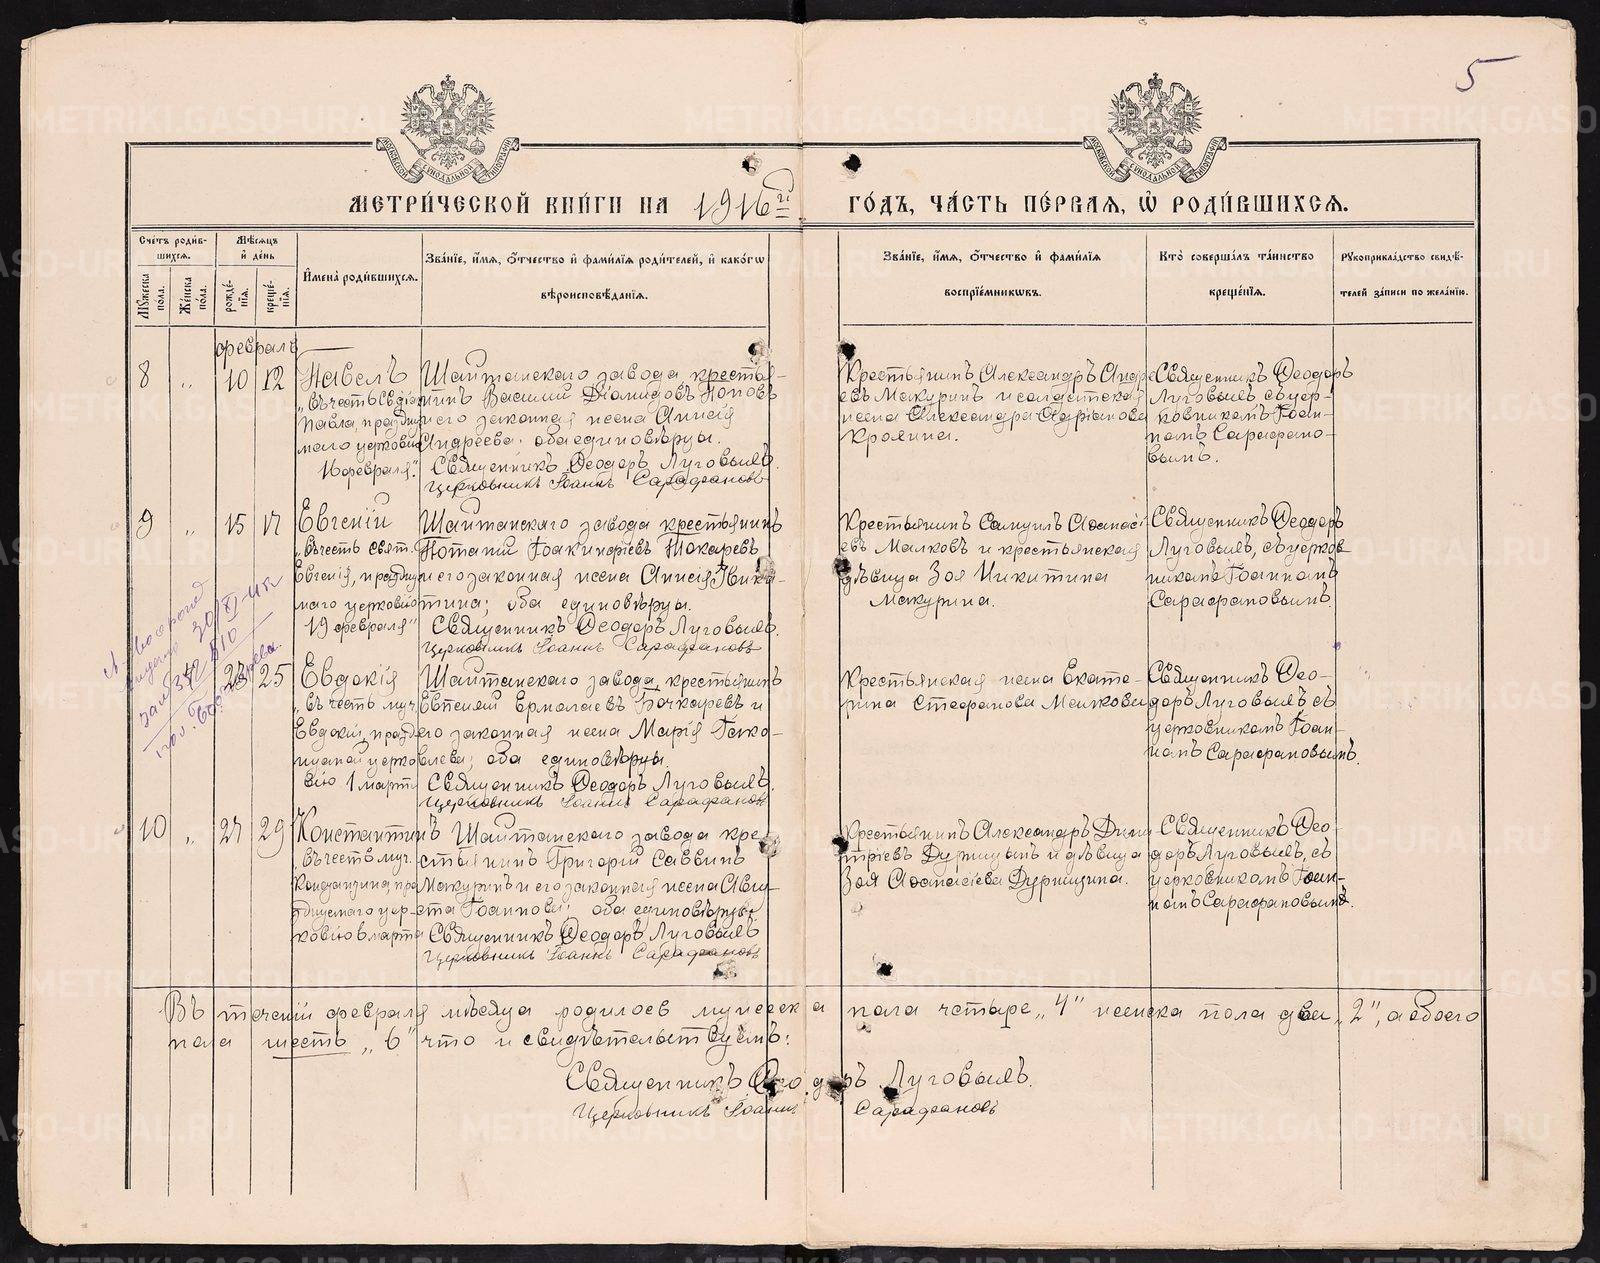 5
МОСКОВСКОЙ СѴНОДАЛЬНОЙ ТИПОГРАФІИ
МОСКОВСКОЙ СѴНОДАЛЬНОЙ ТИПОГРАФІИ
МЕТРИ́ЧЕСКОЙ КНИ́ГИ НА 1916й ГО́ДЪ, ЧА́СТЬ ПЕ́РВАЯ, Ѡ РОДИ́ВШИХСЯ.
Сче́тъ роди́в-
шихся.
Мѣ́сяцъ
и де́нь
Му́жеска пола.
Же́нска по́ла.
рожде́-нія.
креще́-нія.
И́мена роди́вшихся.
Зва́ніе, и́мя, о́тчество и фами́лія роди́телей, и како́гѡ
вѣроисповѣ́данія.
Зва́ніе, и́мя, о́тчество и фами́лія
воспріе́мниковъ.
Кто̀ соверша́лъ та́инство
креще́нія.
Рукоприкла́дство свидѣ́-
телей за́писи по жела́нію.
февраль
8 " 10 12 Павелъ
"въ честь Св.
Павла, праздну
маго церковью
16 февраля".
Шайтанскаго завода крестья-
нинъ Василий Діомидовъ Поповъ
и его законная жена Анисія
Андреева. оба единовѣрцы.
Священникъ Ѳеодоръ Луговыхъ.
Церковникъ Іоаннъ Сарафановъ
Крестьянинъ Александръ Андре
евъ Мокуринъ и солдатская
жена Александра Адріанова
Кромина.
Священникъ Ѳеодоръ
Луговыхъ, съ цер-
ковникомъ Іоан-
номъ Сарафано-
вымъ.
9 " 15 17 Евгеній
"въ честь свят.
Евгенія, праздну
маго церковію
19 февраля"
Шайтанскаго завода крестьянинъ
Потапій Іоакинфіевъ Токаревъ
и его законная жена Анисія Ники-
тина; оба единовѣрцы.
Священникъ Ѳеодоръ Луговыхъ.
Церковникъ Іоаннъ Сарафановъ
Крестьянинъ Самуилъ Аѳанасі
евъ Малковъ и крестьянская
дѣвица Зоя Никитина
Мокурина.
Священникъ Ѳеодоръ
Луговыхъ, съ церков-
никомъ Іоанномъ
Сарафановымъ.
" 10 23 25 Евдокія
"въ честь муч.
Евдокіи, праздн
нуемой церко
вію 1 марта
Шайтанскаго завода, крестьянинъ
Евгеній Ермолаевъ Бочкаревъ и
его законная жена Марія Іако-
влева; оба единовѣрцы.
Священникъ Ѳеодоръ Луговыхъ.
Церковникъ Іоаннъ Сарафановъ
Крестьянская жена Екате-
рина Стефанова Малкова
Священникъ Ѳео-
доръ Луговыхъ съ
церковникомъ Іоан-
номъ Сарафановымъ.
10 " 27 29 Константинъ
"въ честь муч.
Констанзина, пра
зднуемаго цер-
ковію 6 марта
Шайтанскаго завода кре-
стьянинъ Григорій Саввинъ
Мокуринъ и его законная жена Авгу-
ста Іоаннова; оба единовѣрцы.
Священникъ Ѳеодоръ Луговыхъ
Церковникъ Іоаннъ Сарафановъ
Крестьянинъ Александръ Дими-
тріевъ Дурницынъ и дѣвица
Зоя Аѳанасіева Дурницина.
Священникъ Ѳео-
доръ Луговыхъ, съ
церковникомъ Іоан-
номъ Сарафановымъ.
Въ теченіи февраля мѣсяца родилось мужеска пола четыре „4" женска пола два „2", а обоего
пола шесть „6" что и свидѣтельствуемъ:
Священникъ Ѳеодоръ Луговыхъ.
Церковникъ Іоаннъ Сарафановъ
METRIKI.GASO-URAL.RU